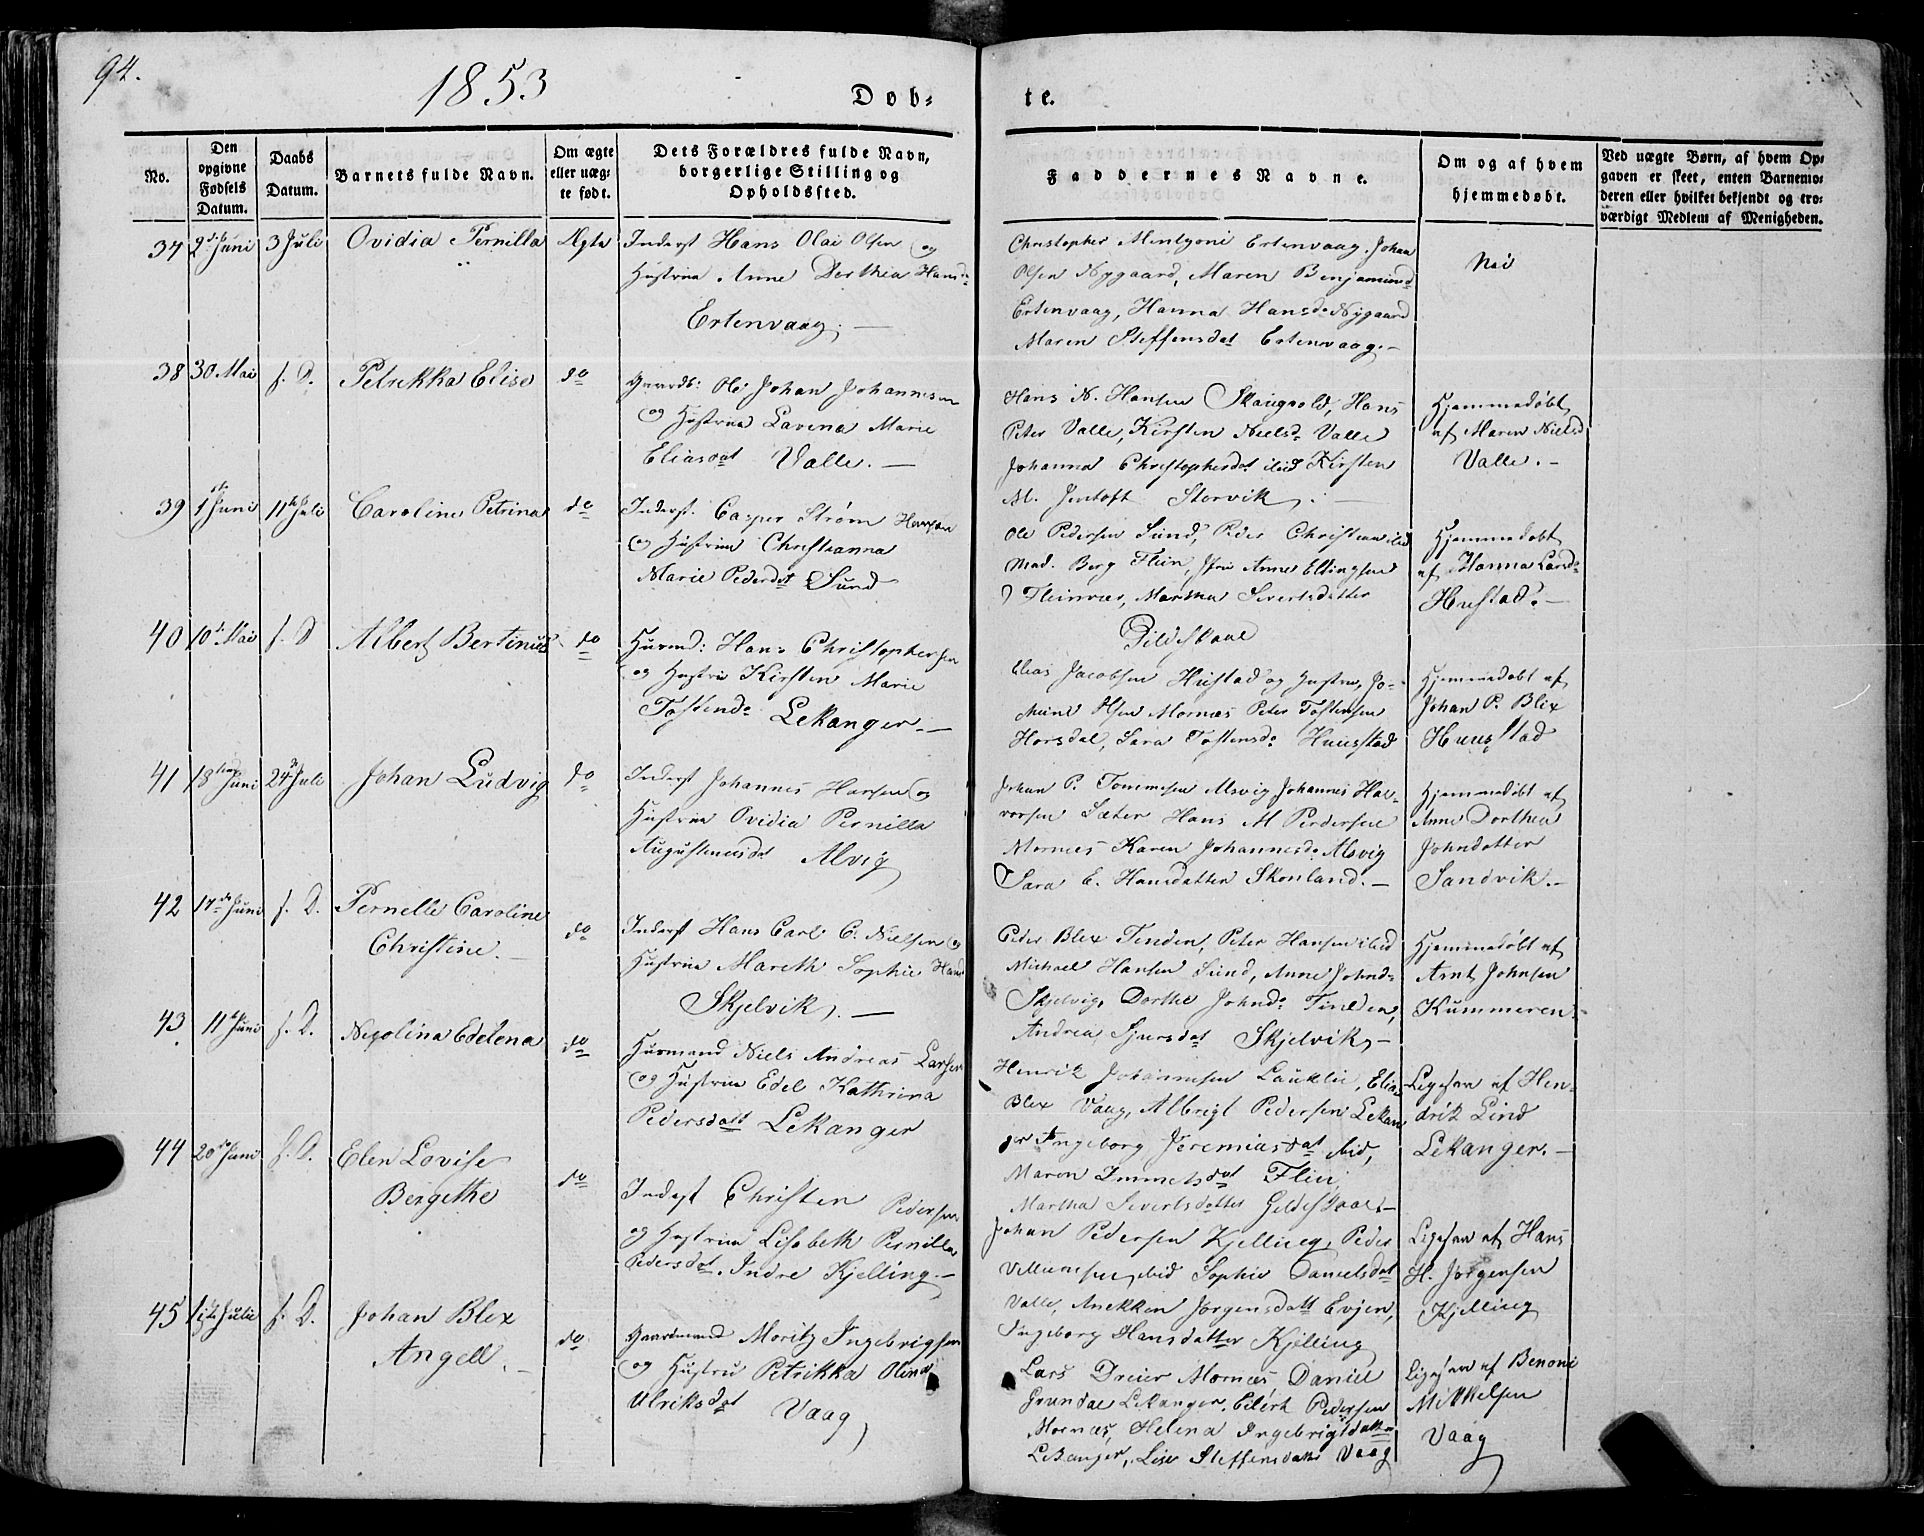 94.
1853
Døb-
te.
No.
Den opgivne Fødsels Datum.
Daabs Datum.
Barnets fulde Navn.
Om ægte eller uægte født.
Dets Forældres fulde Navn, borgerlige Stilling og Opholdssted.
Faddernes Navne.
Om og af hvem hjemmedøbt.
Ved uægte Børn, af hvem Opgaven er skeet, enten Barnemoderen eller hvilket bekjendt og troværdigt Medlem af Menigheden.
37 2den Juni 3 Juli Ovidia Pernilla Ægte
Inderst Hans Olai Olsen og
Hustrue Anne Dorthea Hansd.
Ertenvaag.
Christopher Ertenvaag, Johan
Olsen Nygaard, Maren Benjamind
Ertenvaag, Hanna Hansd. Nygaard
Maren Steffensdat Ertenvaag.
Nei
38 30 Mai s. D. Petrikka Elise do
Gaardb: Ole Johan Johannesen
og Hustrue Lavina Marie
Eliasdat Valle.
Hans N. Hansen Skaugvold, Hans
Peter Valle, Kirsten Nielsd. Valle
Johanna Christophersdat ibid Kirsten
M. Jentoft Storvik.
Hjemmedøbt
af Maren Nielsd
Valle.
39 1ste Juni 11te Juli Caroline Petrina do
Inderst. Casper Strøm Hansen
og Hustrue Christianna
Marie Pedersdat Sund
Ole Pedersen Sund, Peder Christian ibid
Mad. Berg Flein, Anne Ellingsen
Fleinvær, Martha Sivertsdatter
Gildeskaal
Hjemmedøbt
af Hanna Larsd.
Hustad.
40 10de Mai s. D Albert Bertinus do
Husmd: Hans Christophersen
og Hustrue Kirsten Marie
Tostend. Lekanger.
Elias Jacobsen Hustad og Hustru, Jo-
Olsen Mornæs Peter Tostensen
Horsdal, Sara Tostensd. Huusstad
Hjemmedøbt af
Johan P. Blix
Huusstad
41 18tende Juni 24de Juli Johan Ludvig do
Inderst Johannes Hansen og
Hustrue Ovidia Pernilla
Augustinusdat Alsvig
Johan P. Tommesen Alsvig Johannes Hal-
vorsen Sæter Hans M Pedersen
Mornæs Karen Johannesd. Alsvig
Sara E. Hansdatter Skonland.
Hjemmedøbt af
Anne Dorthea
Johnsdatter
Sandvik.
42 17de Juni s. D. Pernelle Caroline
Christine. do
Inderst Hans Carl C. Nielsen og
Hustrue Mareth Sophie Hansd
Skjelvik.
Peder Blix Tinden, Peter Hansen ibid
Michael Hansen Sund, Anne Johnd.
Skjelvig, Dorthe Johnd. Tinden,
Andrea Sjursdat Skjelvik
Hjemmedøbt af
Arnt Johnsen
Kummeren.
43 11te Juni s. D. Nicolina Edelena do
Husmand Niels Andreas Larsen
og Hustrue Edel Kathrina
Pedersdatt Lekanger
Henrik Johannesen Lauklie, Elias
Blix Vaag, Albrigt Pedersen Lekan
ger Ingeborg Jeremiasdat ibid,
Maren Emmetsdat Flein
Martha Sivertsdatter Gildeskaal.
Ligesaa af Hen-
drik Lind
Lekanger.
44 20de Juni s. D. Elen Lovise
Bergithe do
Inderst Christen Pedersen
og Hustrue Lisabeth Pernilla
Pedersdat. Indre Kjelling.
Johan Pedersen Kjelling, Peder
Villumsen ibid Sophie Danielsdat
Valle, Anekken Jørgensdatt Evjen,
Ingeborg Hansdatter Kjelling
Ligesaa af Hans
H. Jørgensen
Kjelling
45 1ste Julie s. D. Johan Blix
Angell. do
Gaardmand Moritz Ingebrigtsen
og Hustru Petrikka Olina
Ulriksdat Vaag
Lars Dreier Mornæs Daniel
Grundal Lekanger, Eilert Pedersen
Mornæs, Helena Ingebrigtsdatter
Lekanger, Lise Steffensdatter Vaag
Ligesaa af Benoni
Mikkelsen
Vaag